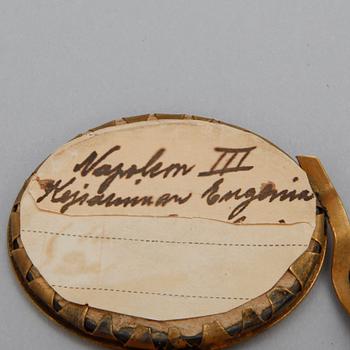 Napoleon III
Kejsarinnan Eugenia